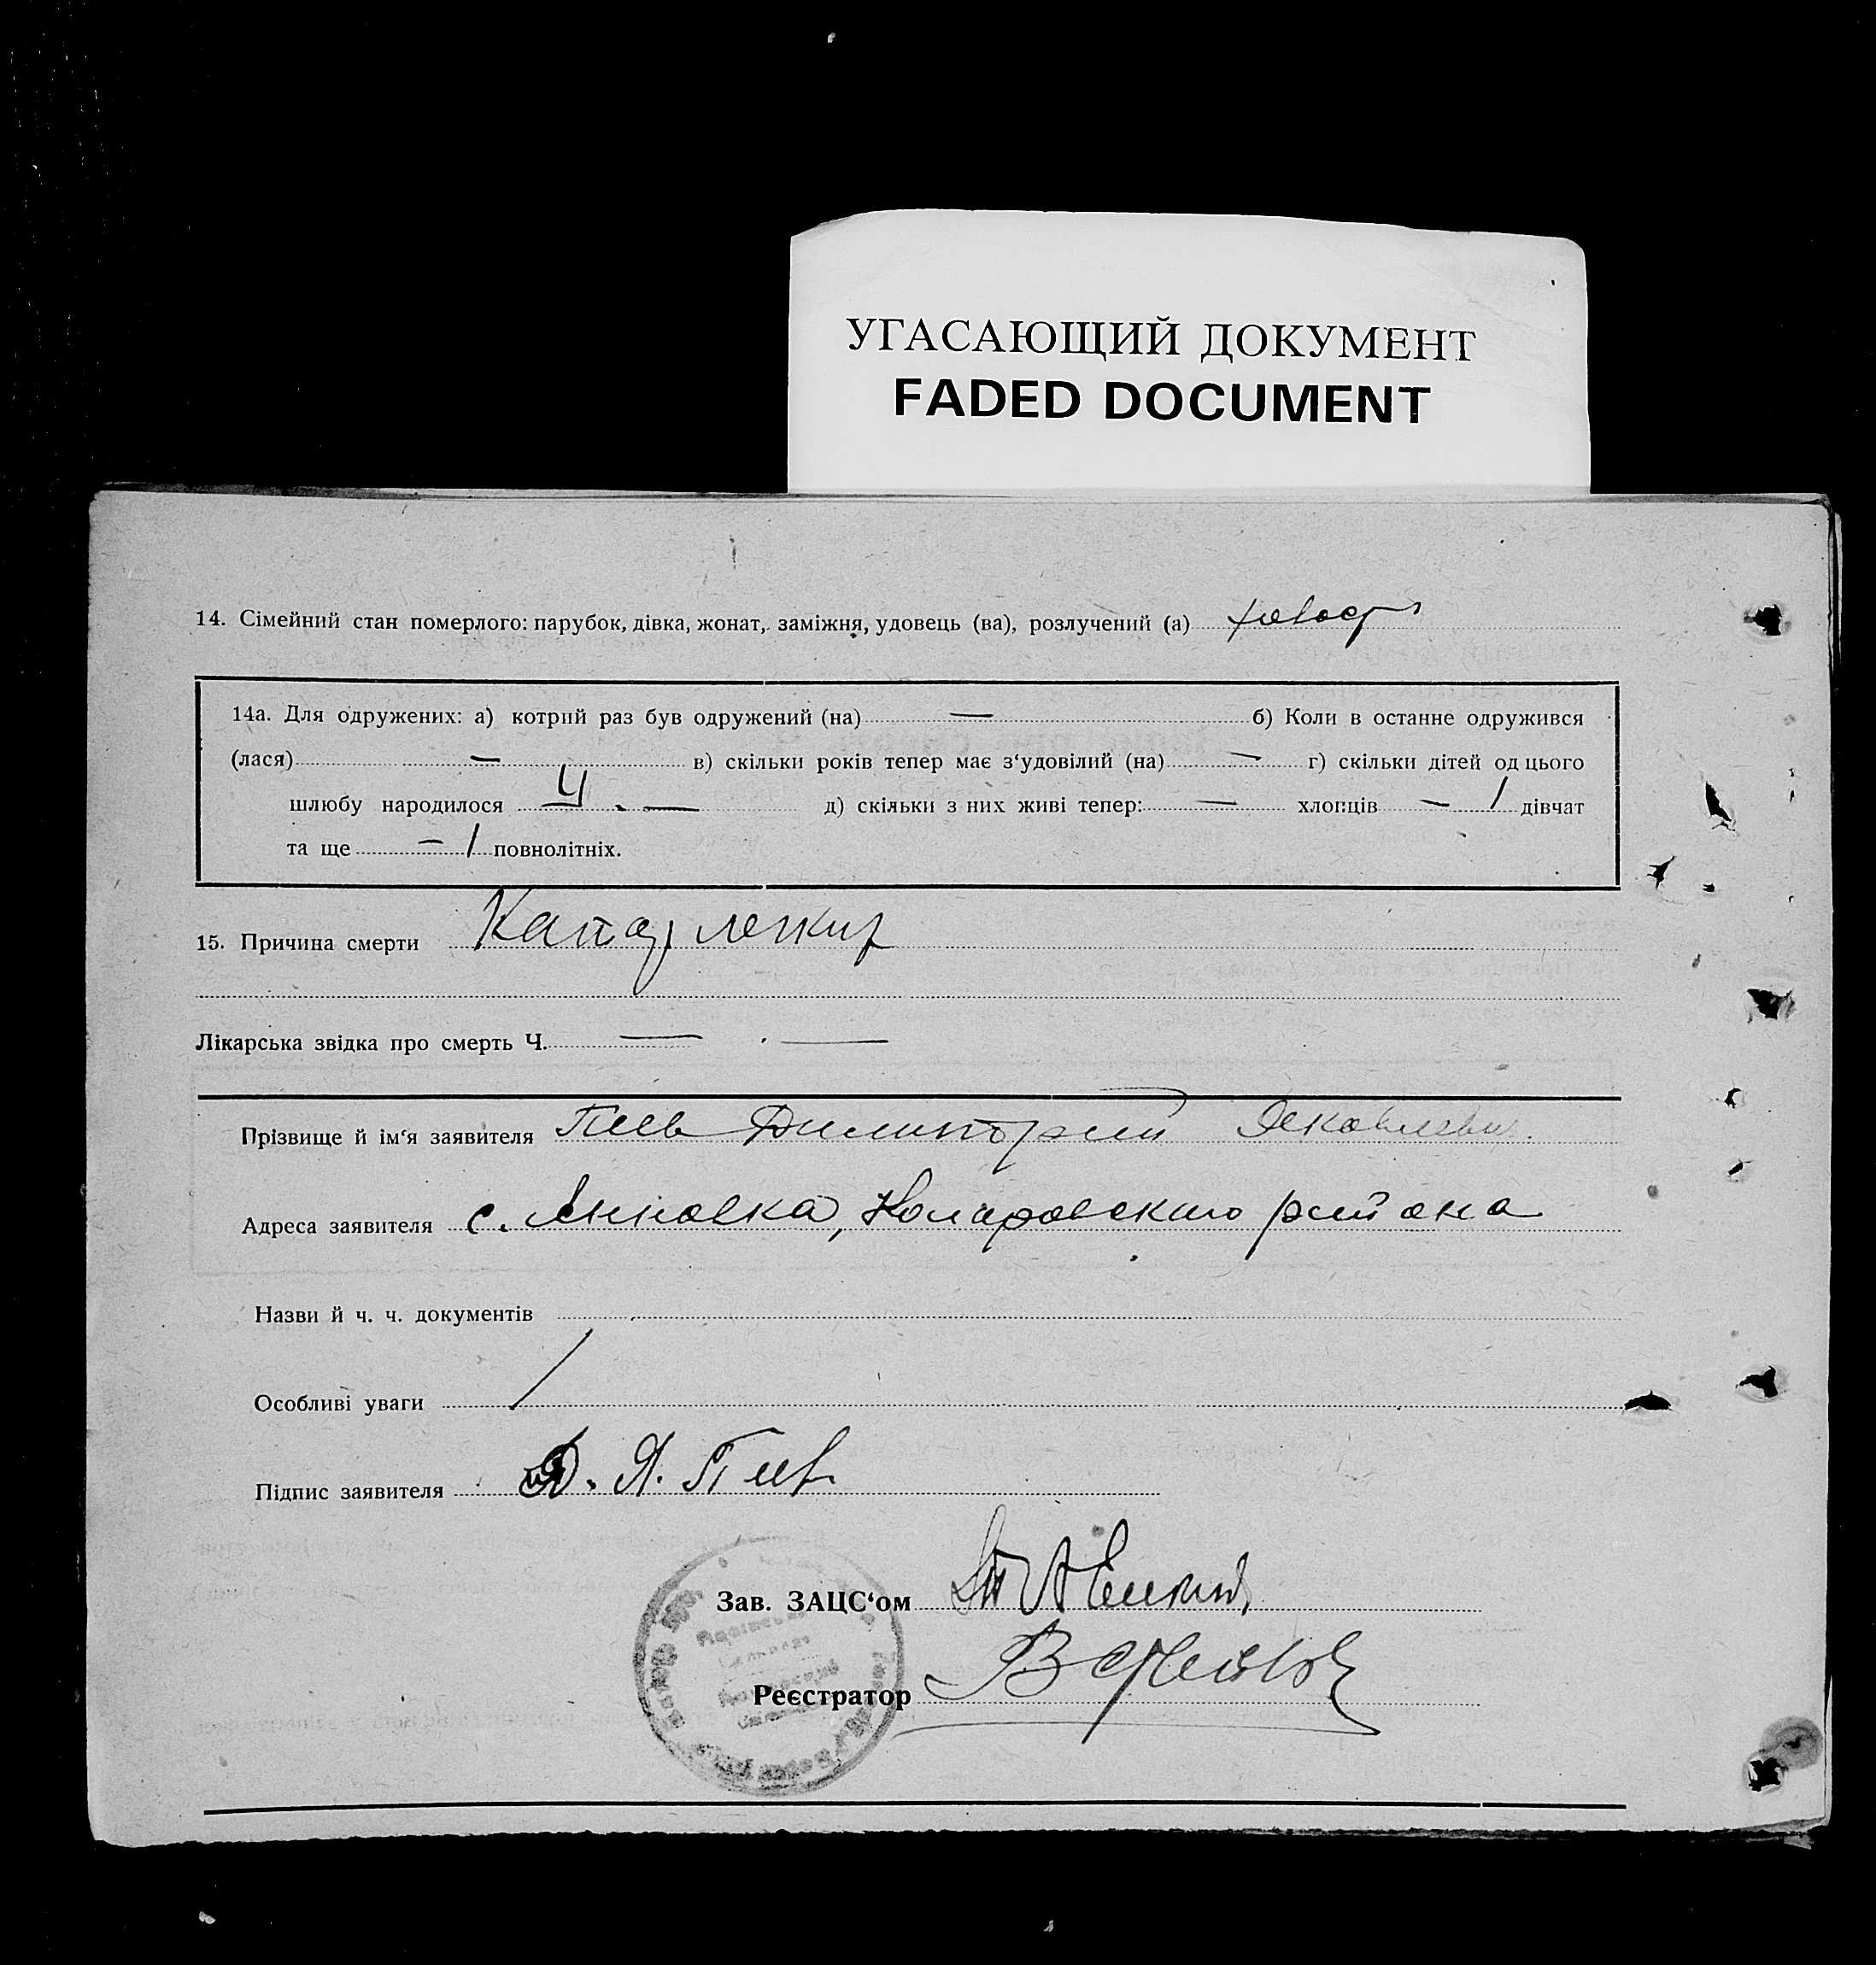 УГАСАЮЩИЙ ДОКУМЕНТ
FADED DOCUMENT
14. Сімейний стан померлого: парубок, дівка, жонат, заміжня, удовець (ва), розлучений (а)
14а. Для одружених: а) котрий раз був одружений (на) — б) Коли в останне одружився
(лася) — в) скільки років тепер має з‘удовілий (на) — г) скільки дітей од цього
шлюбу народилося — д) скільки з них живі тепер: — хлопців — / дівчат
та ще — / повнолітніх.
15. Причина смерти Катар легких
Лікарська звідка про смерть Ч. — —
Прізвище й ім‘я заявителя Яковлевич
Адреса заявителя с. Анновка, Коларовского района
Назви й ч. ч. документів
Особливі уваги /
Підпис заявителя Д. Я.
Зав. ЗАЦС‘ом
Реєстратор